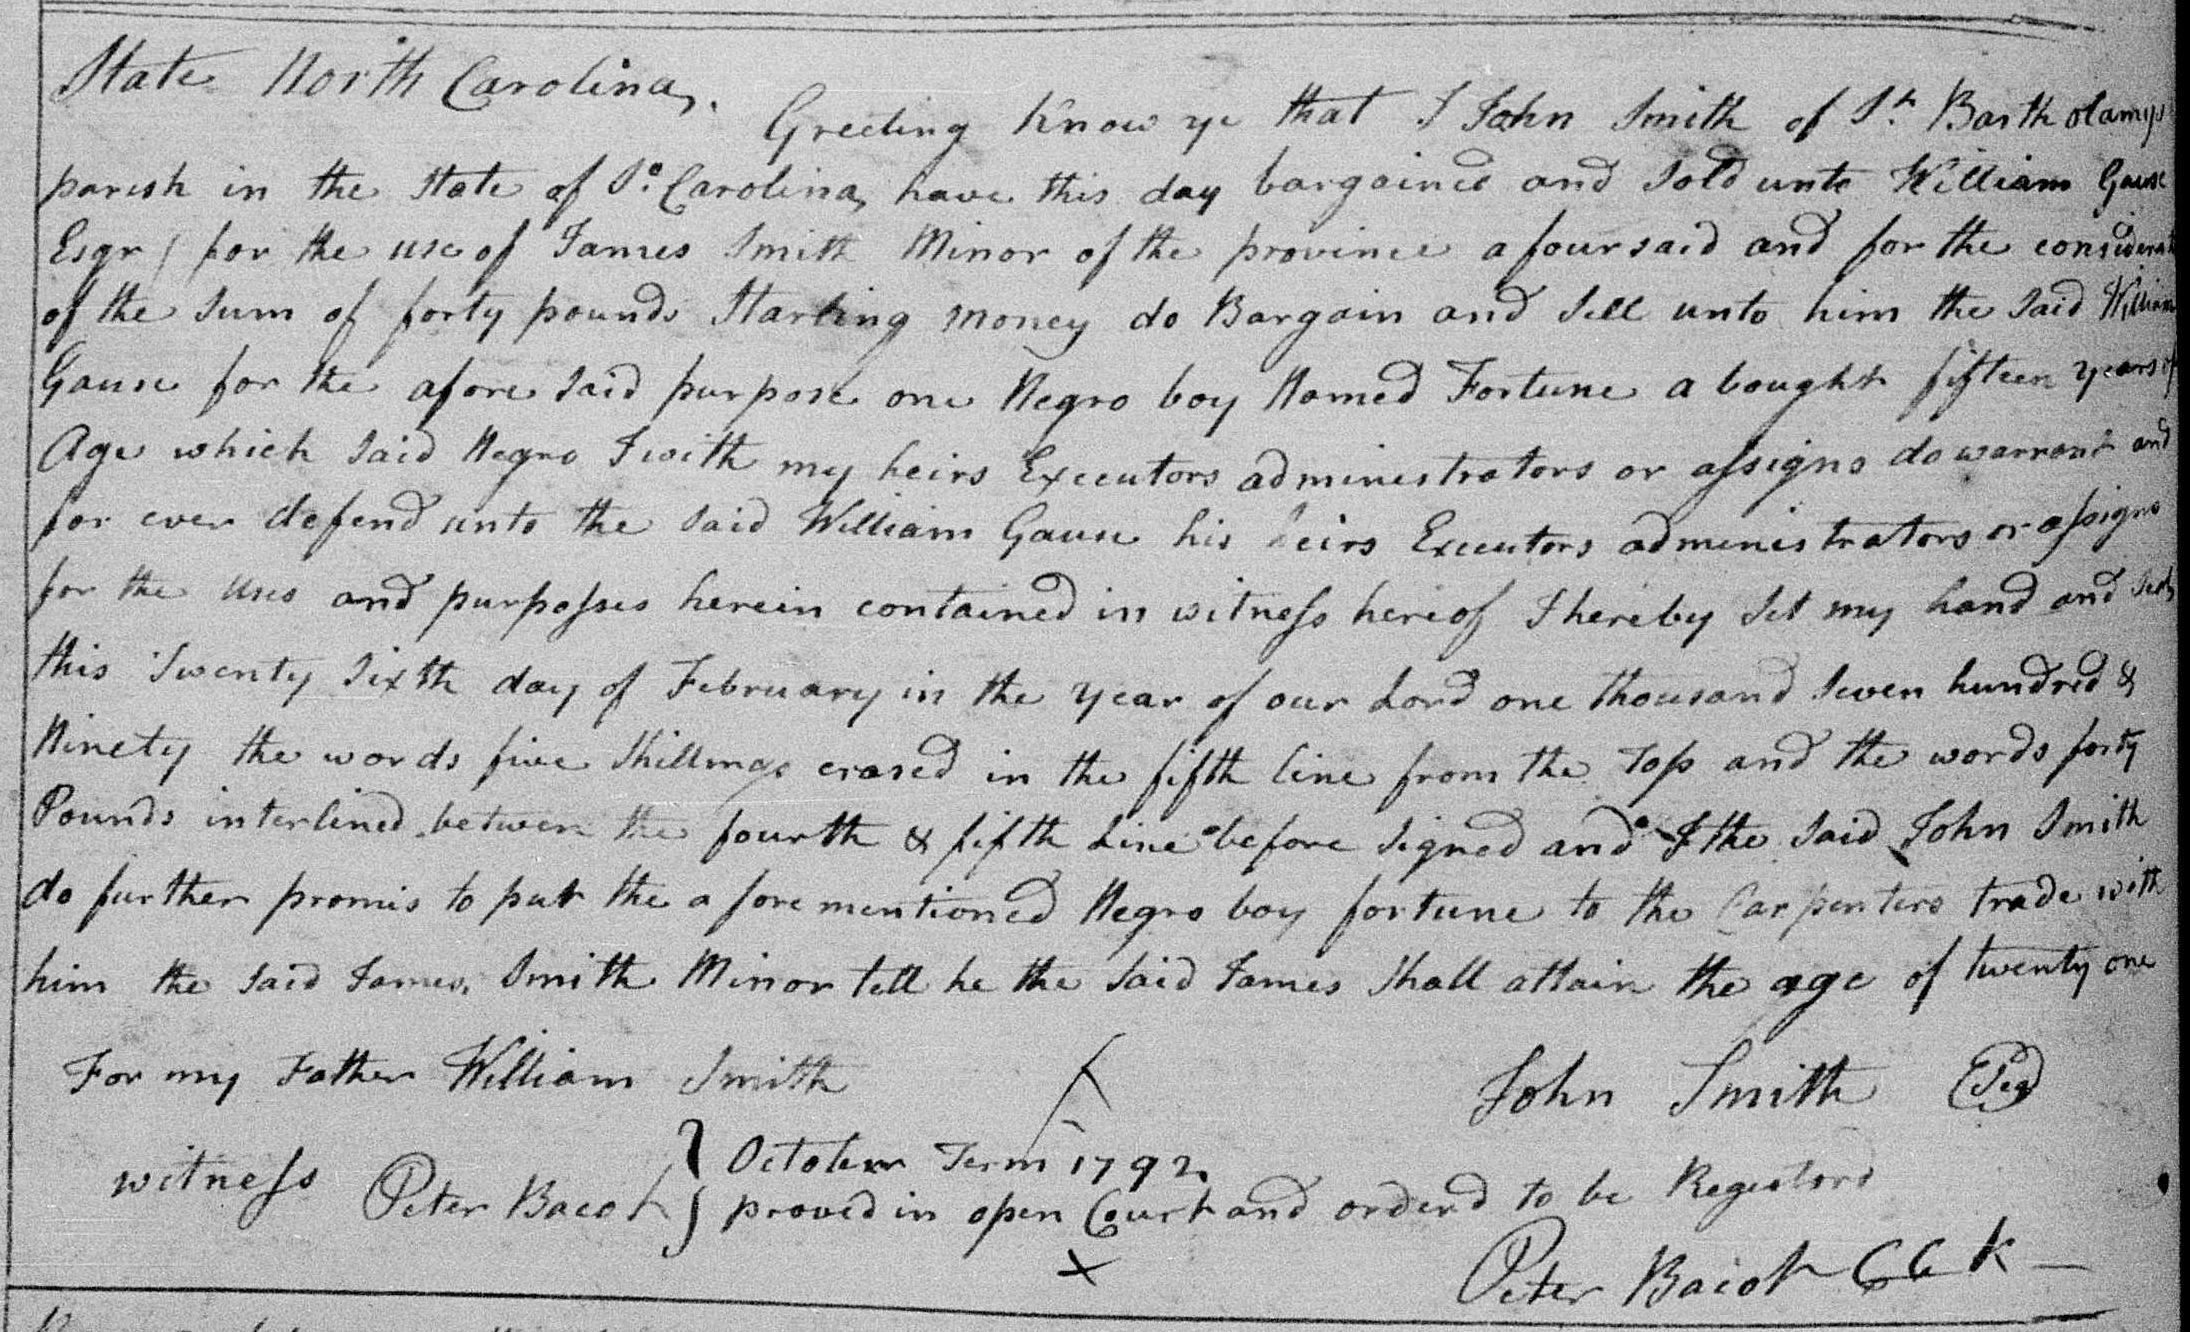 State North Carolina,
Greeting Know ye that I John Smith of St. Bartholamys
parish in the State of So. Carolina, have this day bargained and Sold unto William Gause
Esqr / for the use of James Smith Minor of the province afoursaid and for the considerat
of the Sum of forty pounds Starling money do Bargain and Sell unto him the Said William
Gause for the afore Said purpose one Negro boy Named Fortune a bought fifteen years of
Age which Said Negro I with my heirs Executors administrators or assigns do warrant and
for ever defend unto the Said William Gause his heirs Executors administrators or assigns
for the Uses and purposses herein contained in witness hereof I hereby Set my hand and Seal,
this Twenty Sixth day of February in the year of our Lord one thousand Seven hundred &
Ninety the words five Shillings erased in the fifth line from the Top and the words forty
Pounds interlined between the fourth & fifth Line before Signed and I the Said John Smith
do further promis to put the aforementioned Negro boy fortune to the Carpenters trade with
him the Said James Smith Minor till he the Said James Shall attain the age of twenty one
For my Father William Smith
John Smith Seal
witness Peter Bacot } October Term 1792
proved in open Court and orderd to be Registord
Peter Bacot CCK